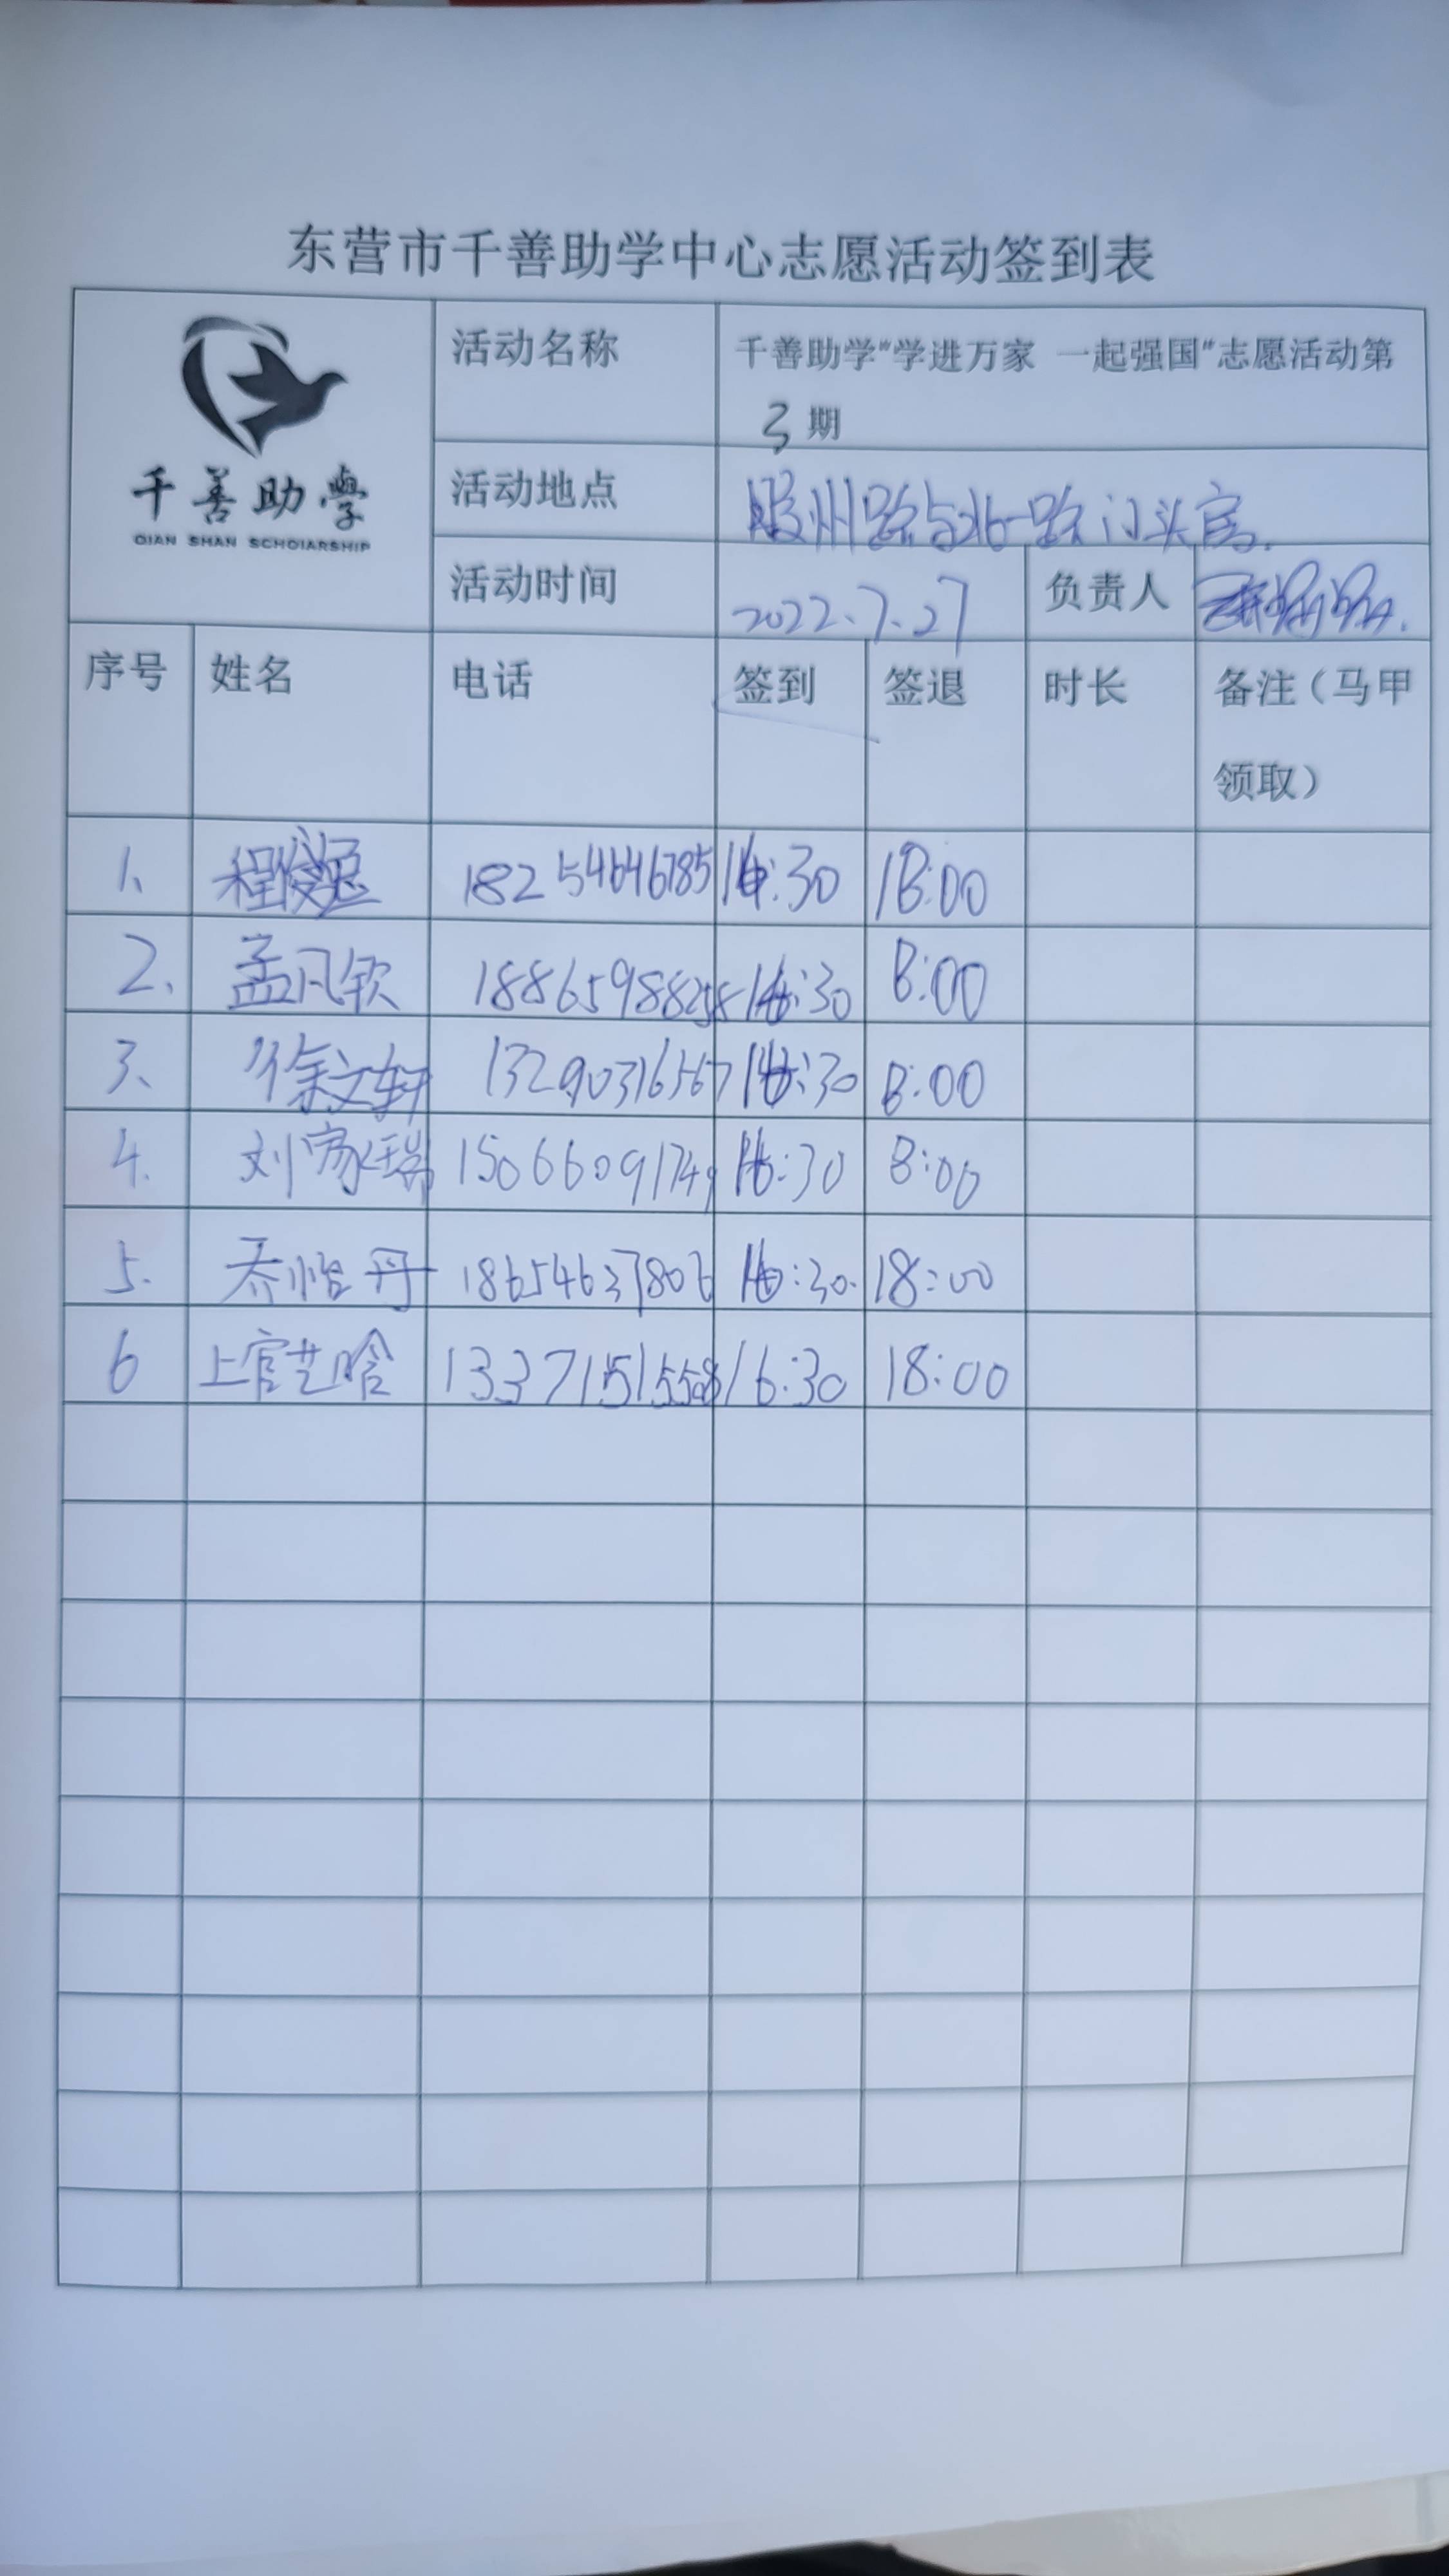 东营市千善助学中心志愿活动签到表
千善助學
QIAN SHAN SCHOLARSHIP
活动名称 千善助学"学进万家 一起强国"志愿活动第
3 期
活动地点 胶州路与北一路门头房.
活动时间 2022.7.27 负责人
序号 姓名 电话 签到 签退 时长 备注（马甲
领取）
1、 程俊逸 18254646785 16:30 18:00
2、 孟凡钦 18865988258 16:30 18:00
3、 徐文轩 13290316567 16:30 18:00
4. 刘家瑞 15066091749 16:30 18:00
5. 乔怡丹 18654637806 16:30. 18:00
6 上官艺晗 13371515508 16:30 18:00